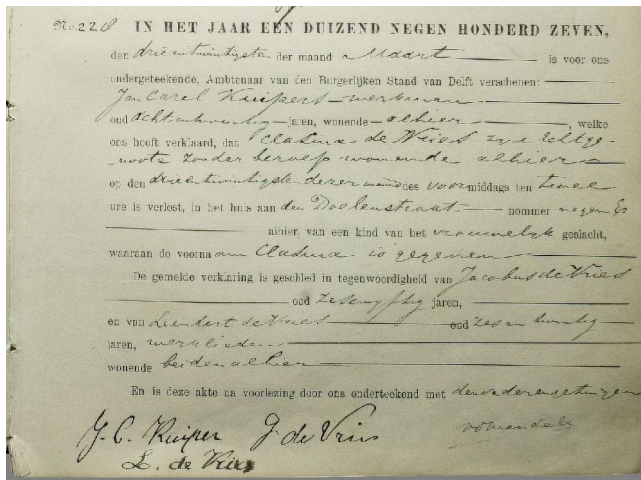 No. 228 IN HET JAAR EEN DUIZEND NEGEN HONDERD ZEVEN,
den drieentwintigste der maand Maart is voor ons
ondergeteekende, Ambtenaar van den Burgerlijken Stand van Delft verschenen:
Jan Carel Kuipers werkman
oud achtentwintig jaren, wonende alhier, welke
ons heeft verklaard, dat Clasina de Vries zijne echtge-
noote zonder beroep wonende alhier
op den drieentwintigste dezer maand des voormiddags ten twee
ure is verlost, in het huis aan den Doelenstraat nommer negen
alhier, van een kind van het vrouwelijk geslacht,
waaraan de voornaam Clasina is gegeven
De gemelde verklaring is geschied in tegenwoordigheid van Jacobus de Vries
oud zesenvijftig jaren,
en van Leendert de Vries oud zesentwintig
jaren, werklieden
wonende beiden alhier
En is deze akte na voorlezing door ons onderteekend met den vader en getuigen
J. C. Kuiper J. de Vries
L. de Vries